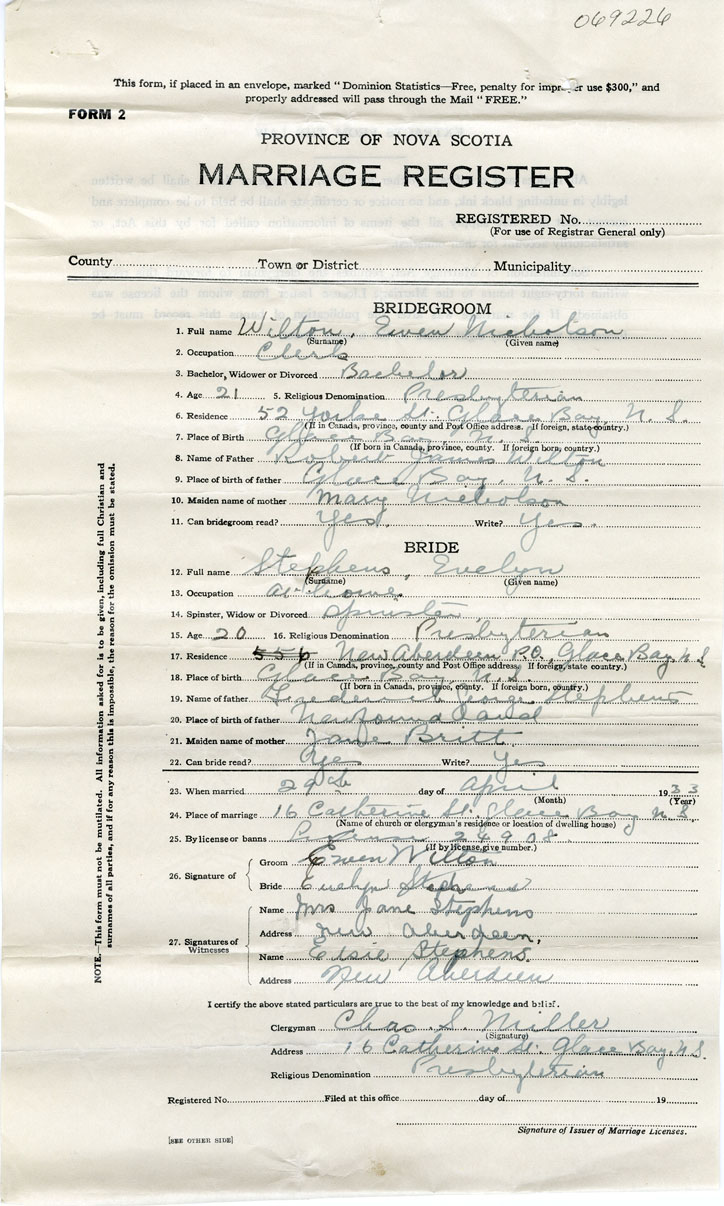 069226
This form, if placed in an envelope, marked "Dominion Statistics—Free, penalty for improper use $300," and
properly addressed will pass through the Mail "FREE."
FORM 2
PROVINCE OF NOVA SCOTIA
MARRIAGE REGISTER
REGISTERED No.
(For use of Registrar General only)
County Town or District Municipality
BRIDEGROOM
1. Full name Wilton, Ewen Nicholson
(Surname) (Given name)
2. Occupation Clerk
3. Bachelor, Widower or Divorced Bachelor
4. Age 21 5. Religious Denomination Presbyterian
6. Residence 52 Yorke St. Glace Bay, N. S.
(If in Canada, province, county and Post Office address. If foreign, state country.)
7. Place of Birth Glace Bay N. S.
(If born in Canada, province, county. If foreign born, country.)
8. Name of Father Robert James Wilton
9. Place of birth of father Glace Bay, N. S.
10. Maiden name of mother Mary Nicholson
11. Can bridegroom read? Yes. Write? Yes.
BRIDE
12. Full name Stephens, Evelyn
(Surname) (Given name)
13. Occupation at home.
14. Spinster, Widow or Divorced Spinster
15. Age 20 16. Religious Denomination Presbyterian
17. Residence 556 New Aberdeen P.O., Glace Bay N.S.
(If in Canada, province, county and Post Office address. If foreign, state country.)
18. Place of birth Glace Bay, N. S.
(If born in Canada, province, county. If foreign born, country.)
19. Name of father Frederick George Stephens
20. Place of birth of father Newfoundland
21. Maiden name of mother Jane Britt
22. Can bride read? Yes Write? Yes
23. When married 29th day of April 1933
(Month) (Year)
24. Place of marriage 16 Catherine St. Glace Bay N.S.
(Name of church or clergyman's residence or location of dwelling house)
25. By license or banns License 24908.
(If by license, give number.)
26. Signature of
Groom Ewen Wilton
Bride Evelyn Stephens
27. Signatures of Witnesses
Name Mrs Jane Stephens
Address New Aberdeen,
Name Elsie Stephens.
Address New Aberdeen
I certify the above stated particulars are true to the best of my knowledge and belief.
Clergyman Chas. S. Miller
(Signature)
Address 16 Catherine St. Glace Bay, N.S.
Religious Denomination Presbyterian
Registered No. Filed at this office day of 19
Signature of Issuer of Marriage Licenses.
[SEE OTHER SIDE]
NOTE.—This form must not be mutilated. All information asked for is to be given, including full Christian and
surnames of all parties, and if for any reason this is impossible, the reason for the omission must be stated.